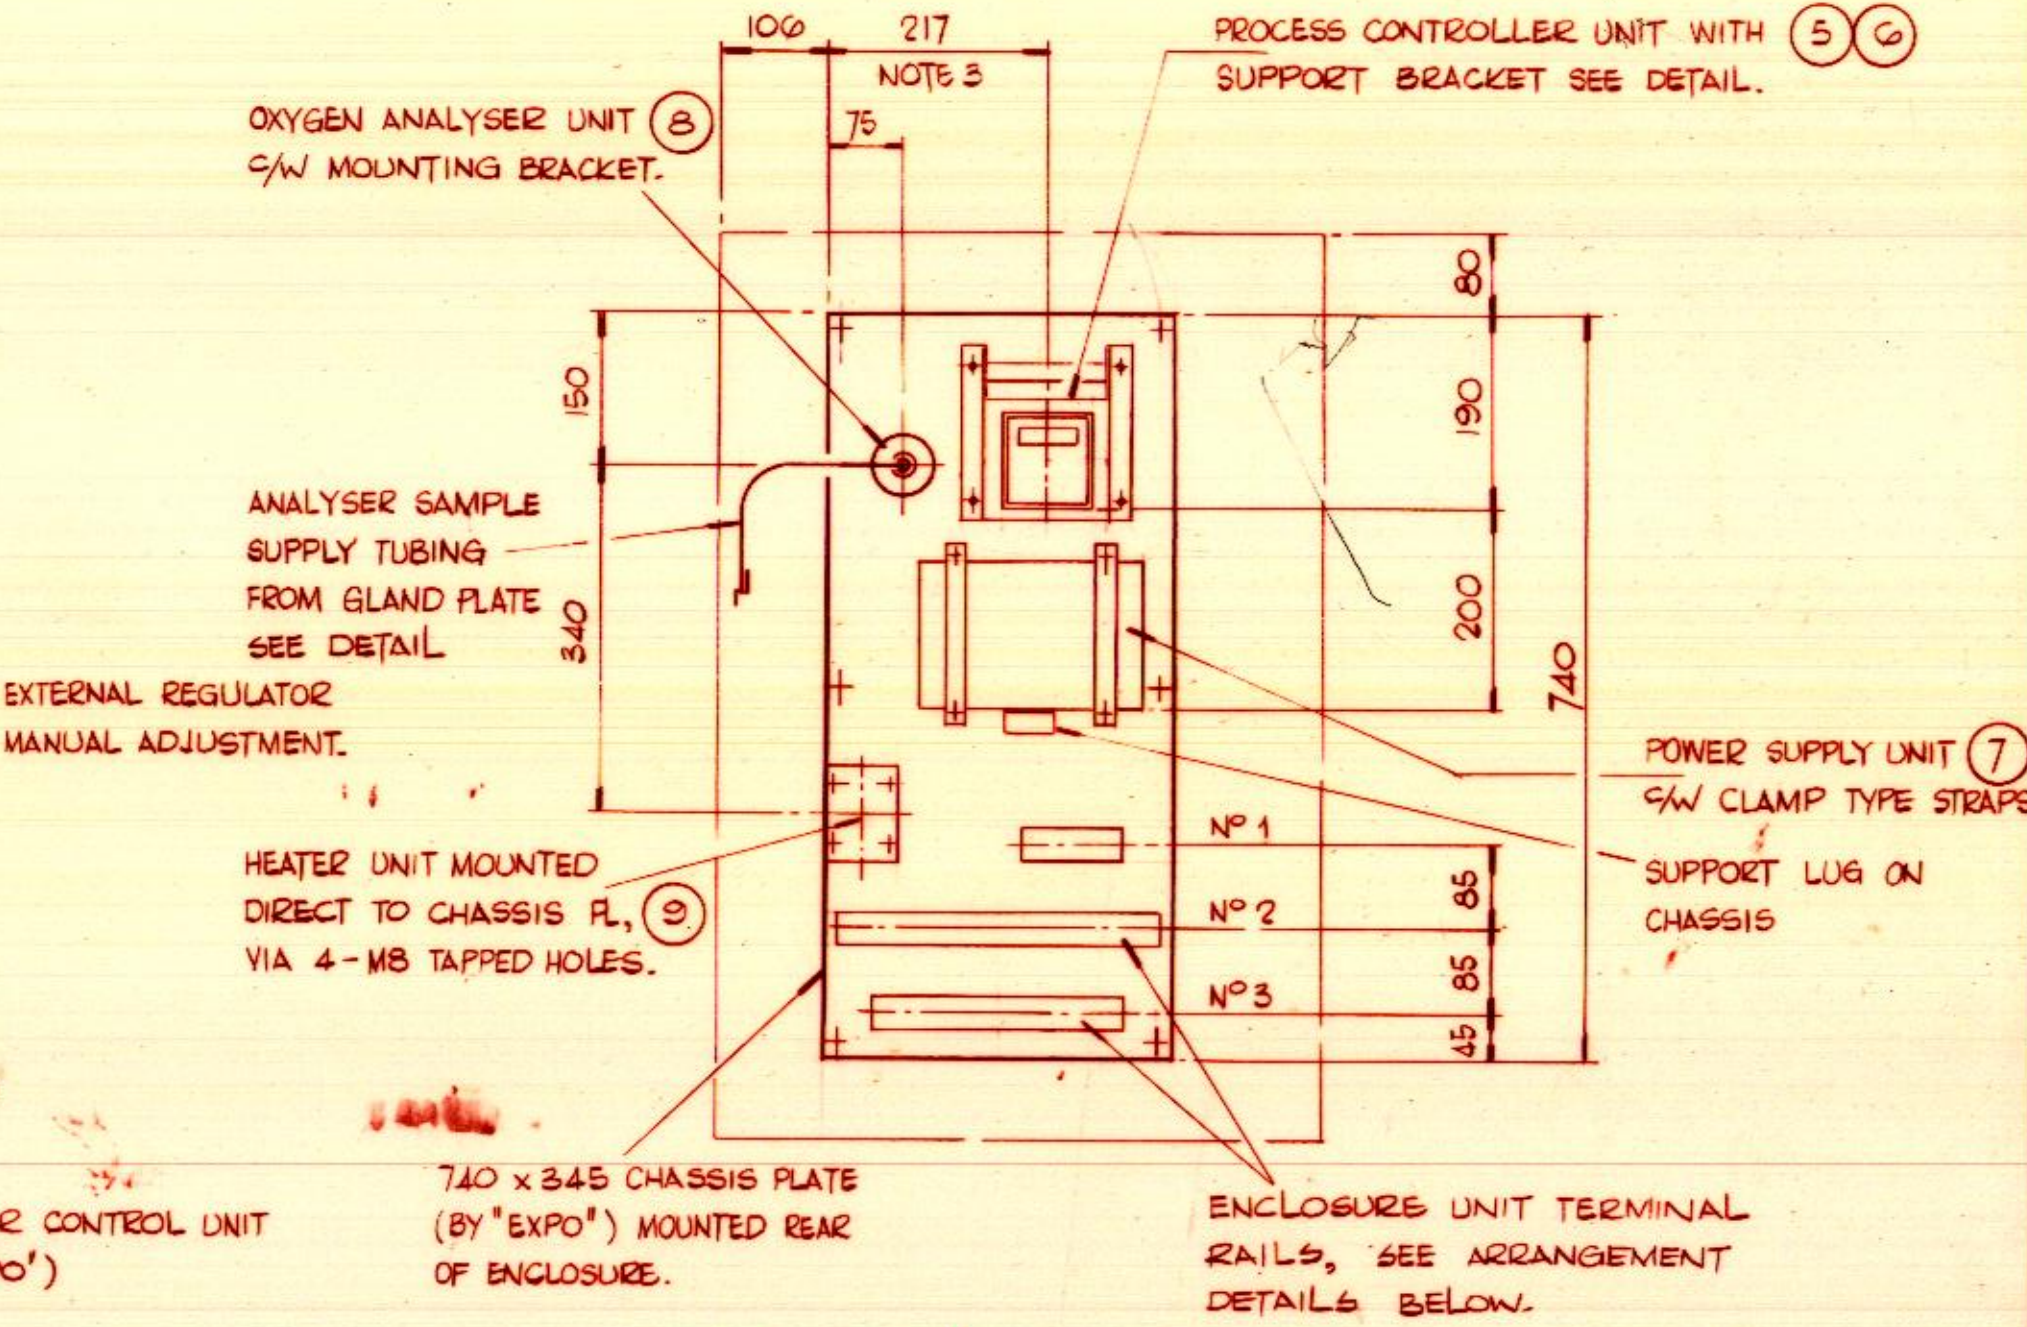 106
217
NOTE 3
75
PROCESS CONTROLLER UNIT WITH 5 6
SUPPORT BRACKET SEE DETAIL.
OXYGEN ANALYSER UNIT 8
C/W MOUNTING BRACKET.
80
150
190
ANALYSER SAMPLE
SUPPLY TUBING
FROM GLAND PLATE
SEE DETAIL
340
200
740
EXTERNAL REGULATOR
MANUAL ADJUSTMENT.
POWER SUPPLY UNIT 7
C/W CLAMP TYPE STRAPS
SUPPORT LUG ON
CHASSIS
HEATER UNIT MOUNTED
DIRECT TO CHASSIS PL, 9
VIA 4-M8 TAPPED HOLES.
Nº 1
85
Nº 2
85
Nº 3
45
R CONTROL UNIT
O')
740 x 345 CHASSIS PLATE
(BY "EXPO") MOUNTED REAR
OF ENCLOSURE.
ENCLOSURE UNIT TERMINAL
RAILS, SEE ARRANGEMENT
DETAILS BELOW.